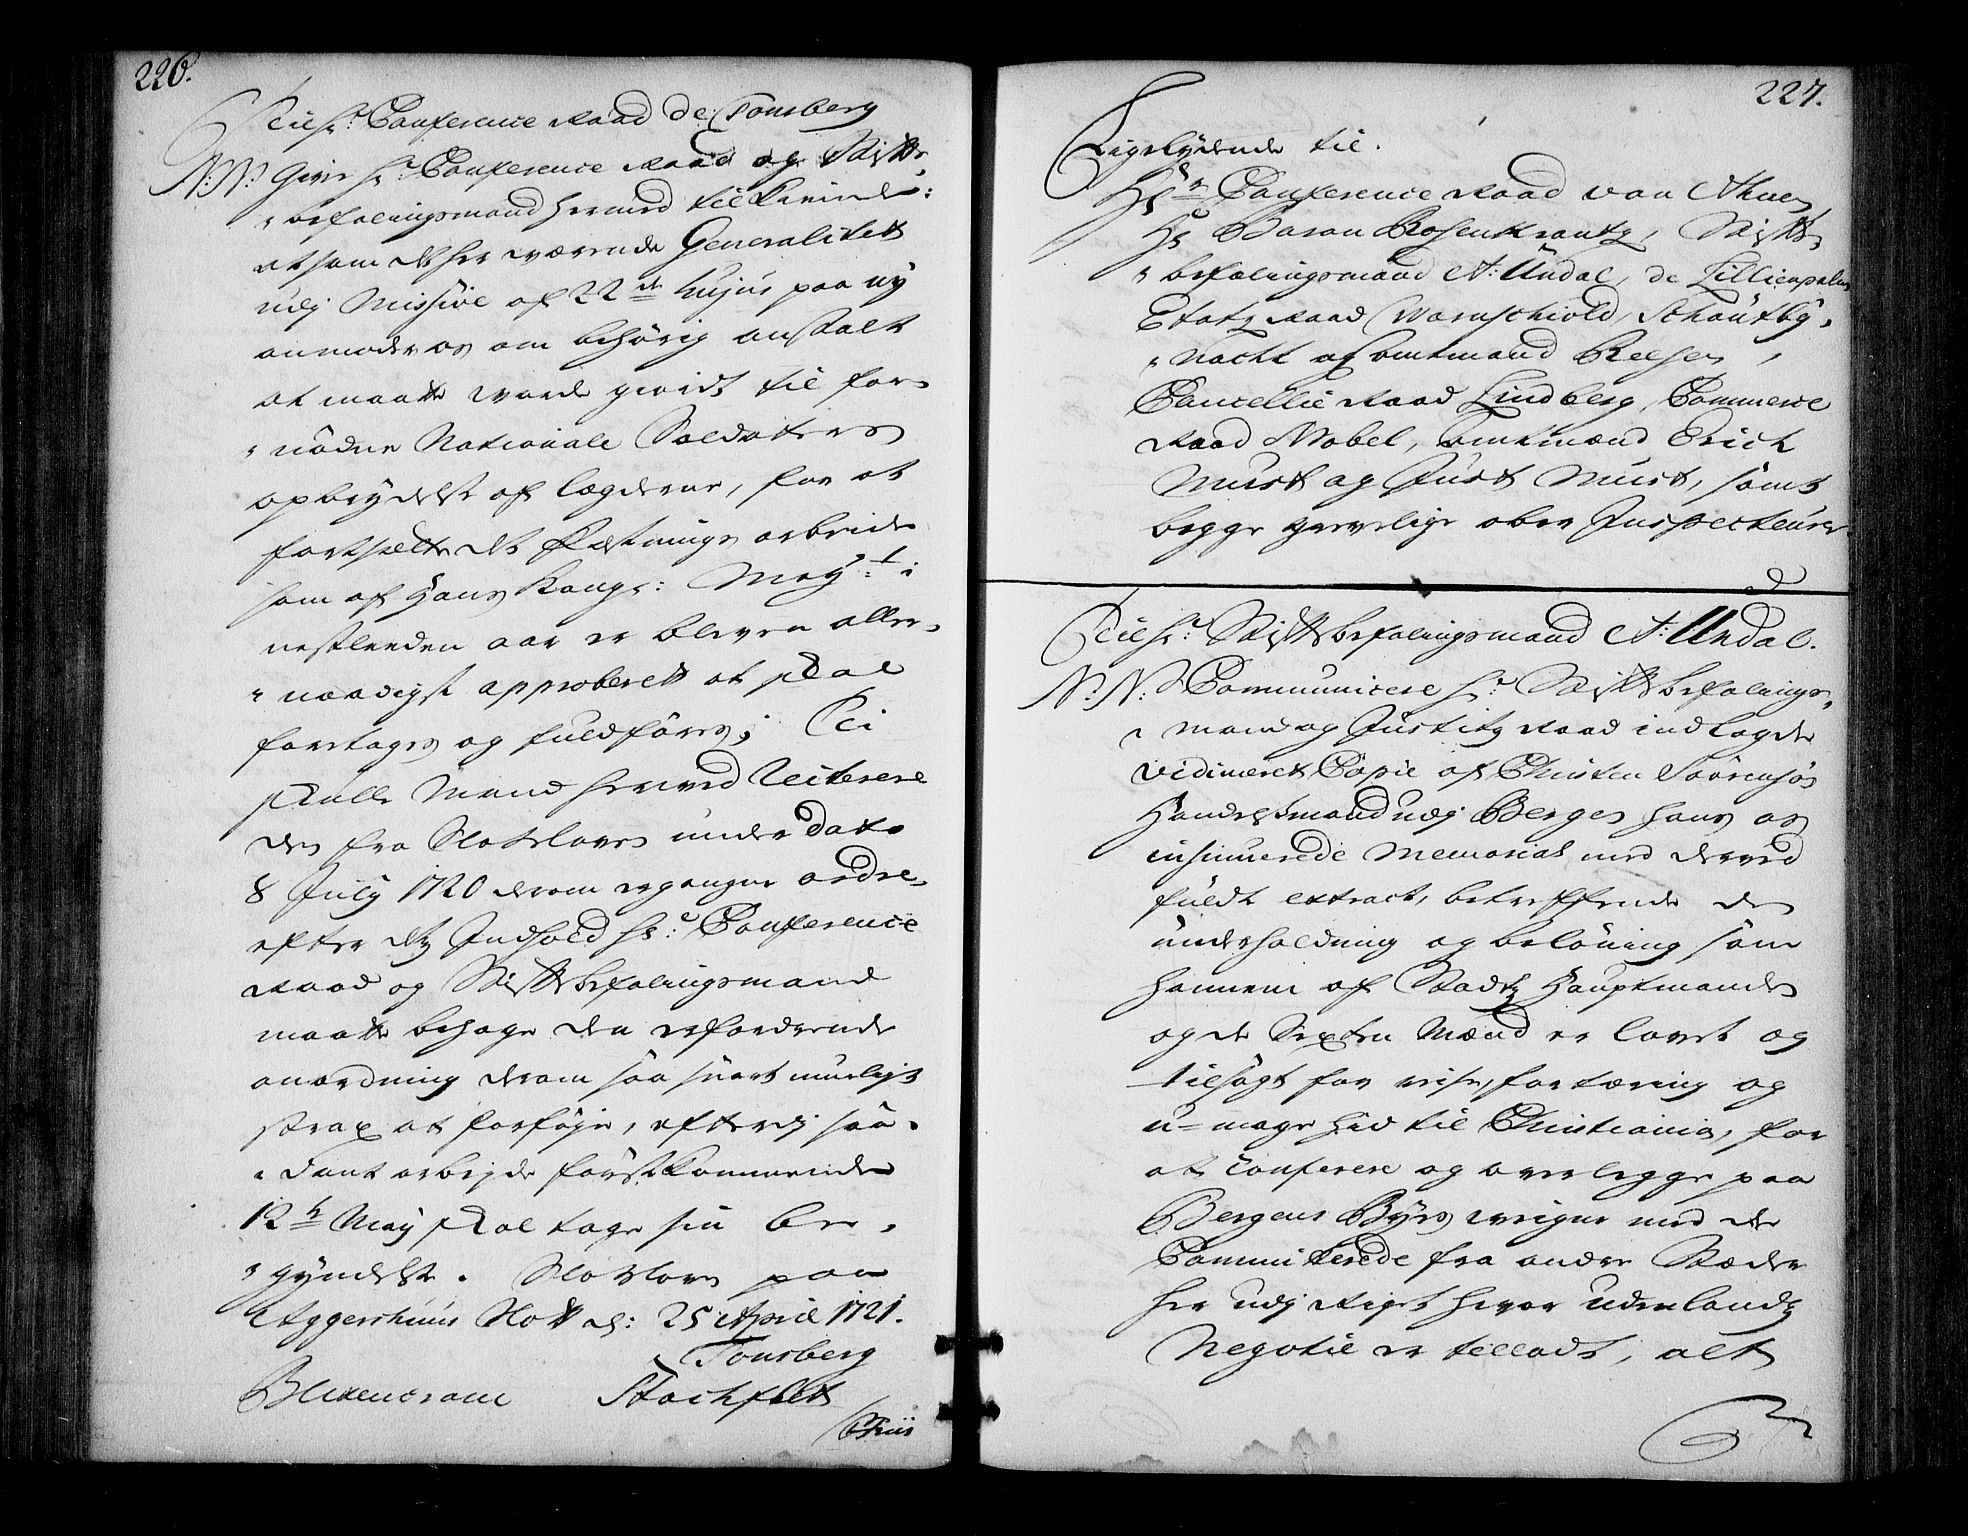 226.
Til Hr: Conference Raad de Tonsberg
N: N: Giver Hr: Conference Raad og Stifts
befalingsmand hermed tilkiende:
at som det her værende Generalitet
udj Missive af 22de hujus paa ny
anmoder os om behørig anstalt
at maatte vorde giordt til for-
nødne Nationale Soldaters
opbydelse af lægderne, for at
fortsætte det Fæstnings arbeide
som af Hans Kongl: Mayt: i
nestleeden aar er bleven aller-
naadigst approberet at skal
foretages og fuldføres; Til
skulle Mand herved Reiterere
den fra Slotsloven under dato
8 July 1720 derom ergangne ordre,
efter dets Indhold Hr: Conference
Raad og Stiftsbefalingsmand
maatte behage den erfordrende
anordning derom saa snart mueligt
strax at forføje, efterdj saa-
dant arbejde førstkommende
12te May skal tage sin be-
gyndelse. Slotsloven paa
Aggershuus Slott d: 25 April 1721.
Tonsberg
Blixencrone Stockfleth
Thiis
227.
Ligelydende til.
Hr Conference Raad von Ahnen
Hr Baron Rosenkrantz, Stifts
befalingsmand A: Undal, de Lillienpalm
Etatz Raad Wornschiold, Schoutby-
nacht og Amtmand Reesen,
Cancellie Raad Lindberg, Commerce
Raad Nobel, Amtmænd Erich
Must og Just Must, samt
begge grevelige ober Inspecteurer
Til Hr: Stiftsbefalingsmand A: Undal.
N: N: Communicere Hr: Stiftsbefalings-
mand og Justitz Raad indlagde
vidimeret Copie af Christen Søørensøn
Handelsmand udj Bergen hans os
insinuerede Memorial med derved
fuldt extract, betreffende den
underholdning og beløning som
hannem af Stadtz Hauptmanden
og de Sexten Mænd er lovet og
tilsagt for reise, fortæring og
u=mage hid til Christiania, for
at Conferere og overlegge paa
Bergens Byes vegne med de
Committerede fra andre Stæder
her udj Riget hvor udenlandtz
Negotie er tilladt, alt